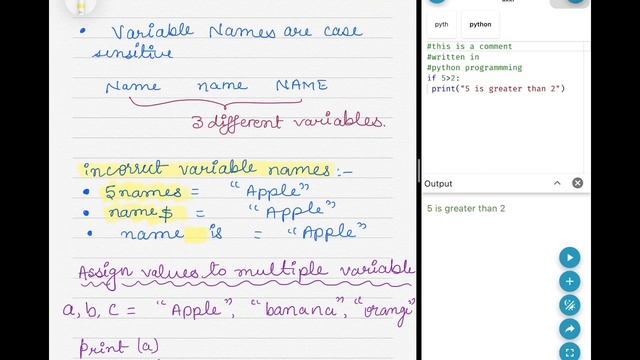 • Variable Names are case
sensitive
Name name NAME
3 different variables.
incorrect variable names :-
• 5names = "Apple"
• name$ = "Apple"
• name is = "Apple"
Assign values to multiple variable
a, b, c = "Apple", "banana", "orange"
print (a)
pyth python
#this is a comment
#written in
#python programmming
if 5>2:
print("5 is greater than 2")
Output
5 is greater than 2